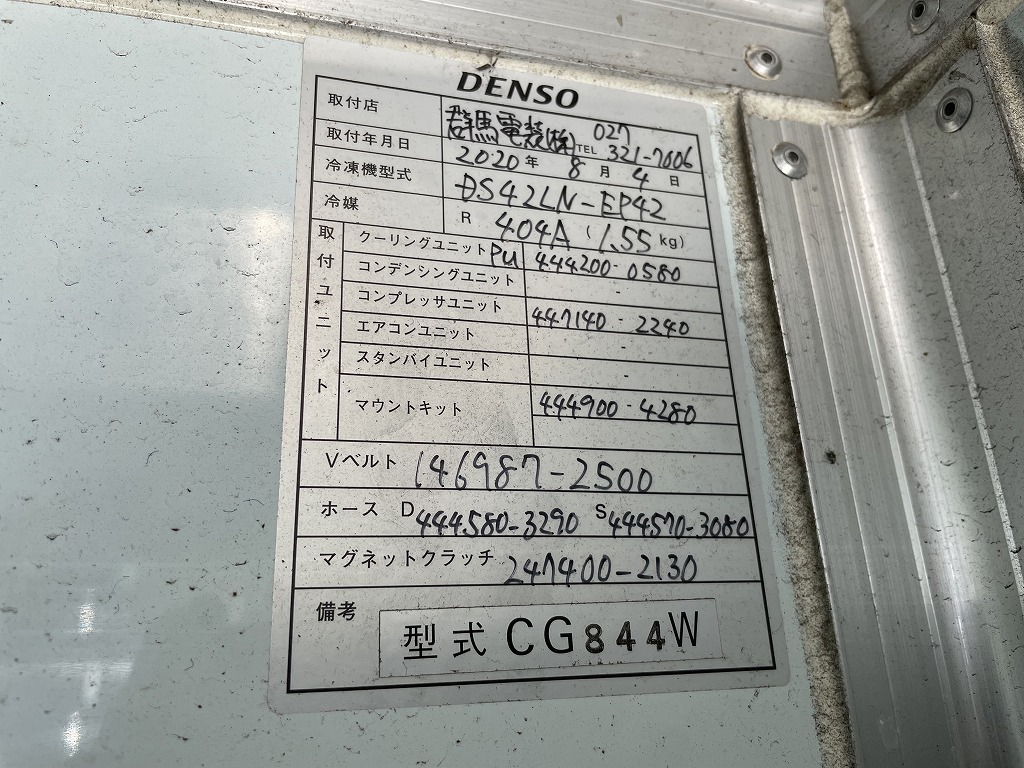 DENSO
取付店 群馬電装(株) TEL 027 321-7006
取付年月日 2020年 8月 4日
冷凍機型式 DS42LN-EP42
冷媒 R 404A (1.55kg)
取付ユニット
クーリングユニット PU 444200-0580
コンデンシングユニット
コンプレッサユニット 447140-2240
エアコンユニット
スタンバイユニット
マウントキット 444900-4280
Vベルト 146987-2500
ホース D 444580-3290 S 444570-3080
マグネットクラッチ 247400-2130
備考
型式 CG844W